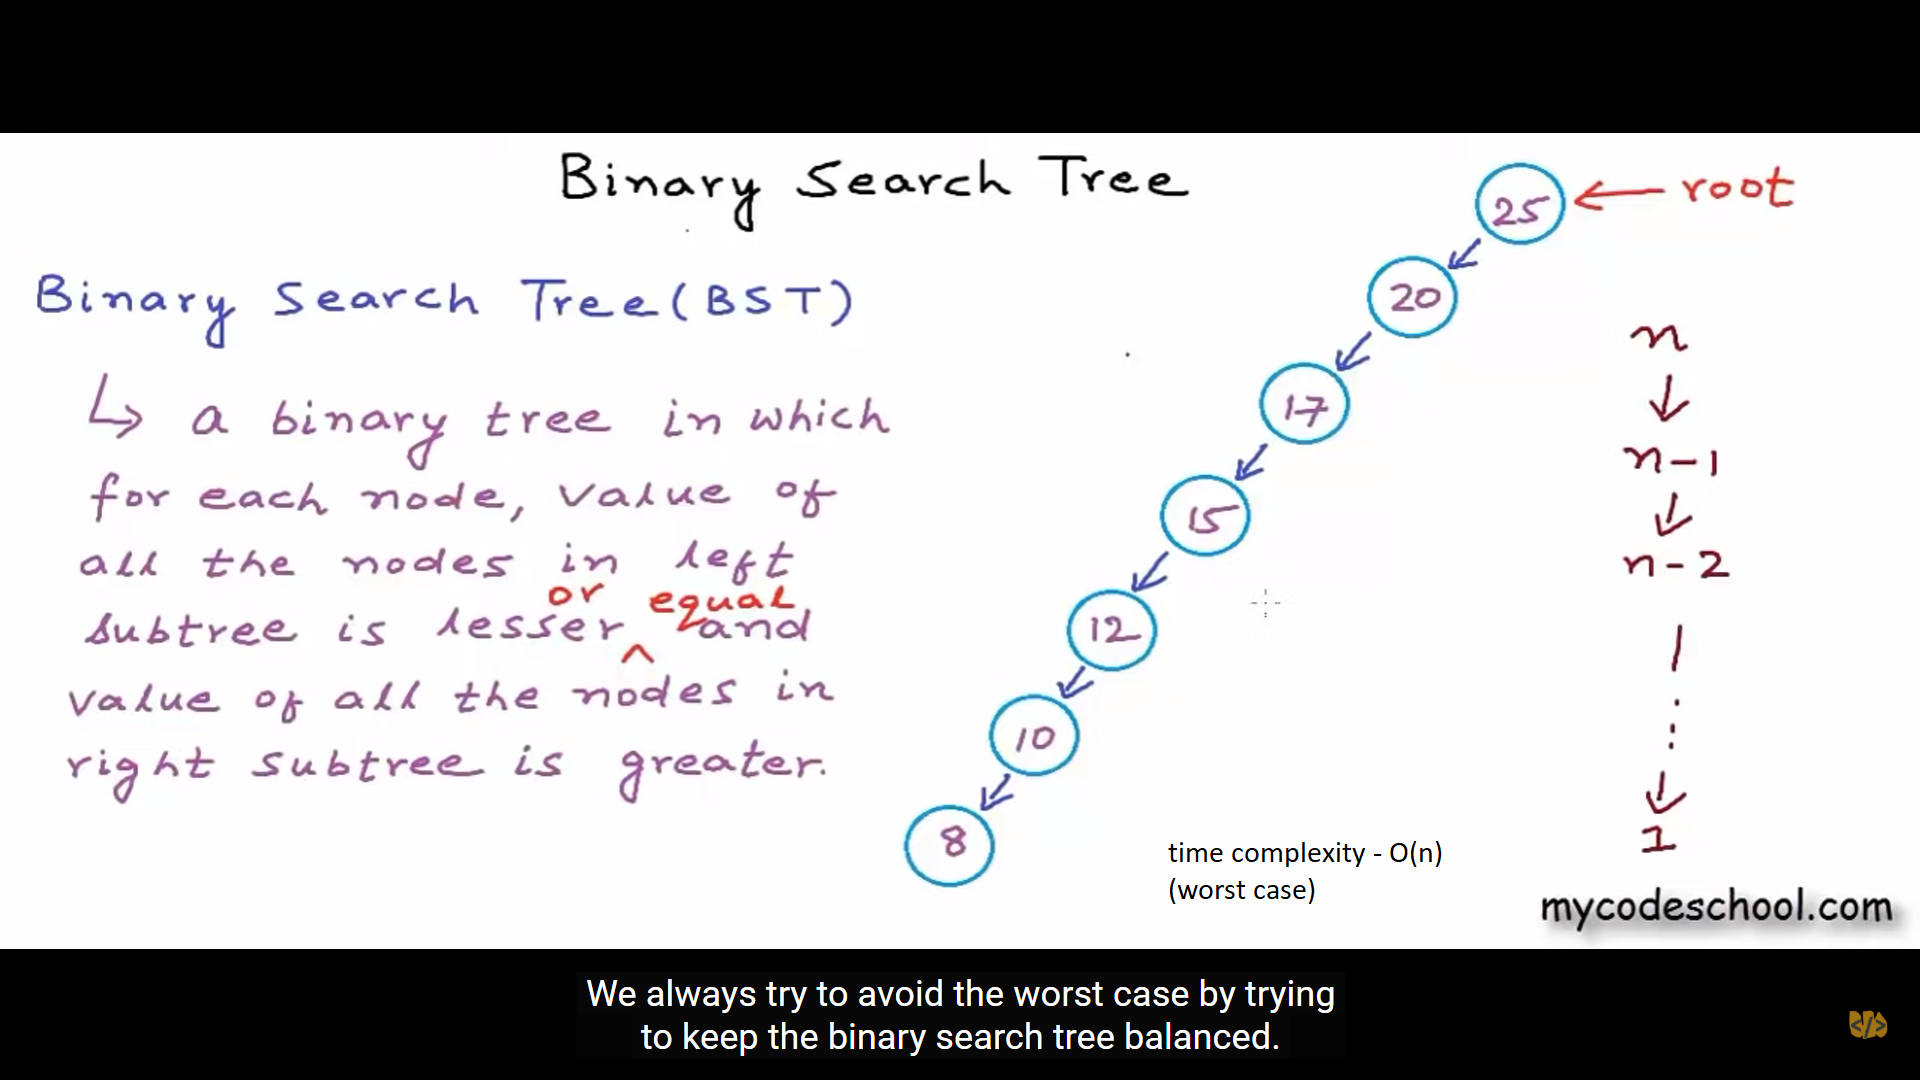 Binary Search Tree
Binary Search Tree (BST)
↳ a binary tree in which
for each node, value of
all the nodes in left
or equal
subtree is lesser ^ and
value of all the nodes in
right subtree is greater.
25 ← root
20
17
15
12
10
8
n
↓
n-1
↓
n-2
|
⋮
↓
1
time complexity - O(n)
(worst case)
mycodeschool.com
We always try to avoid the worst case by trying
to keep the binary search tree balanced.